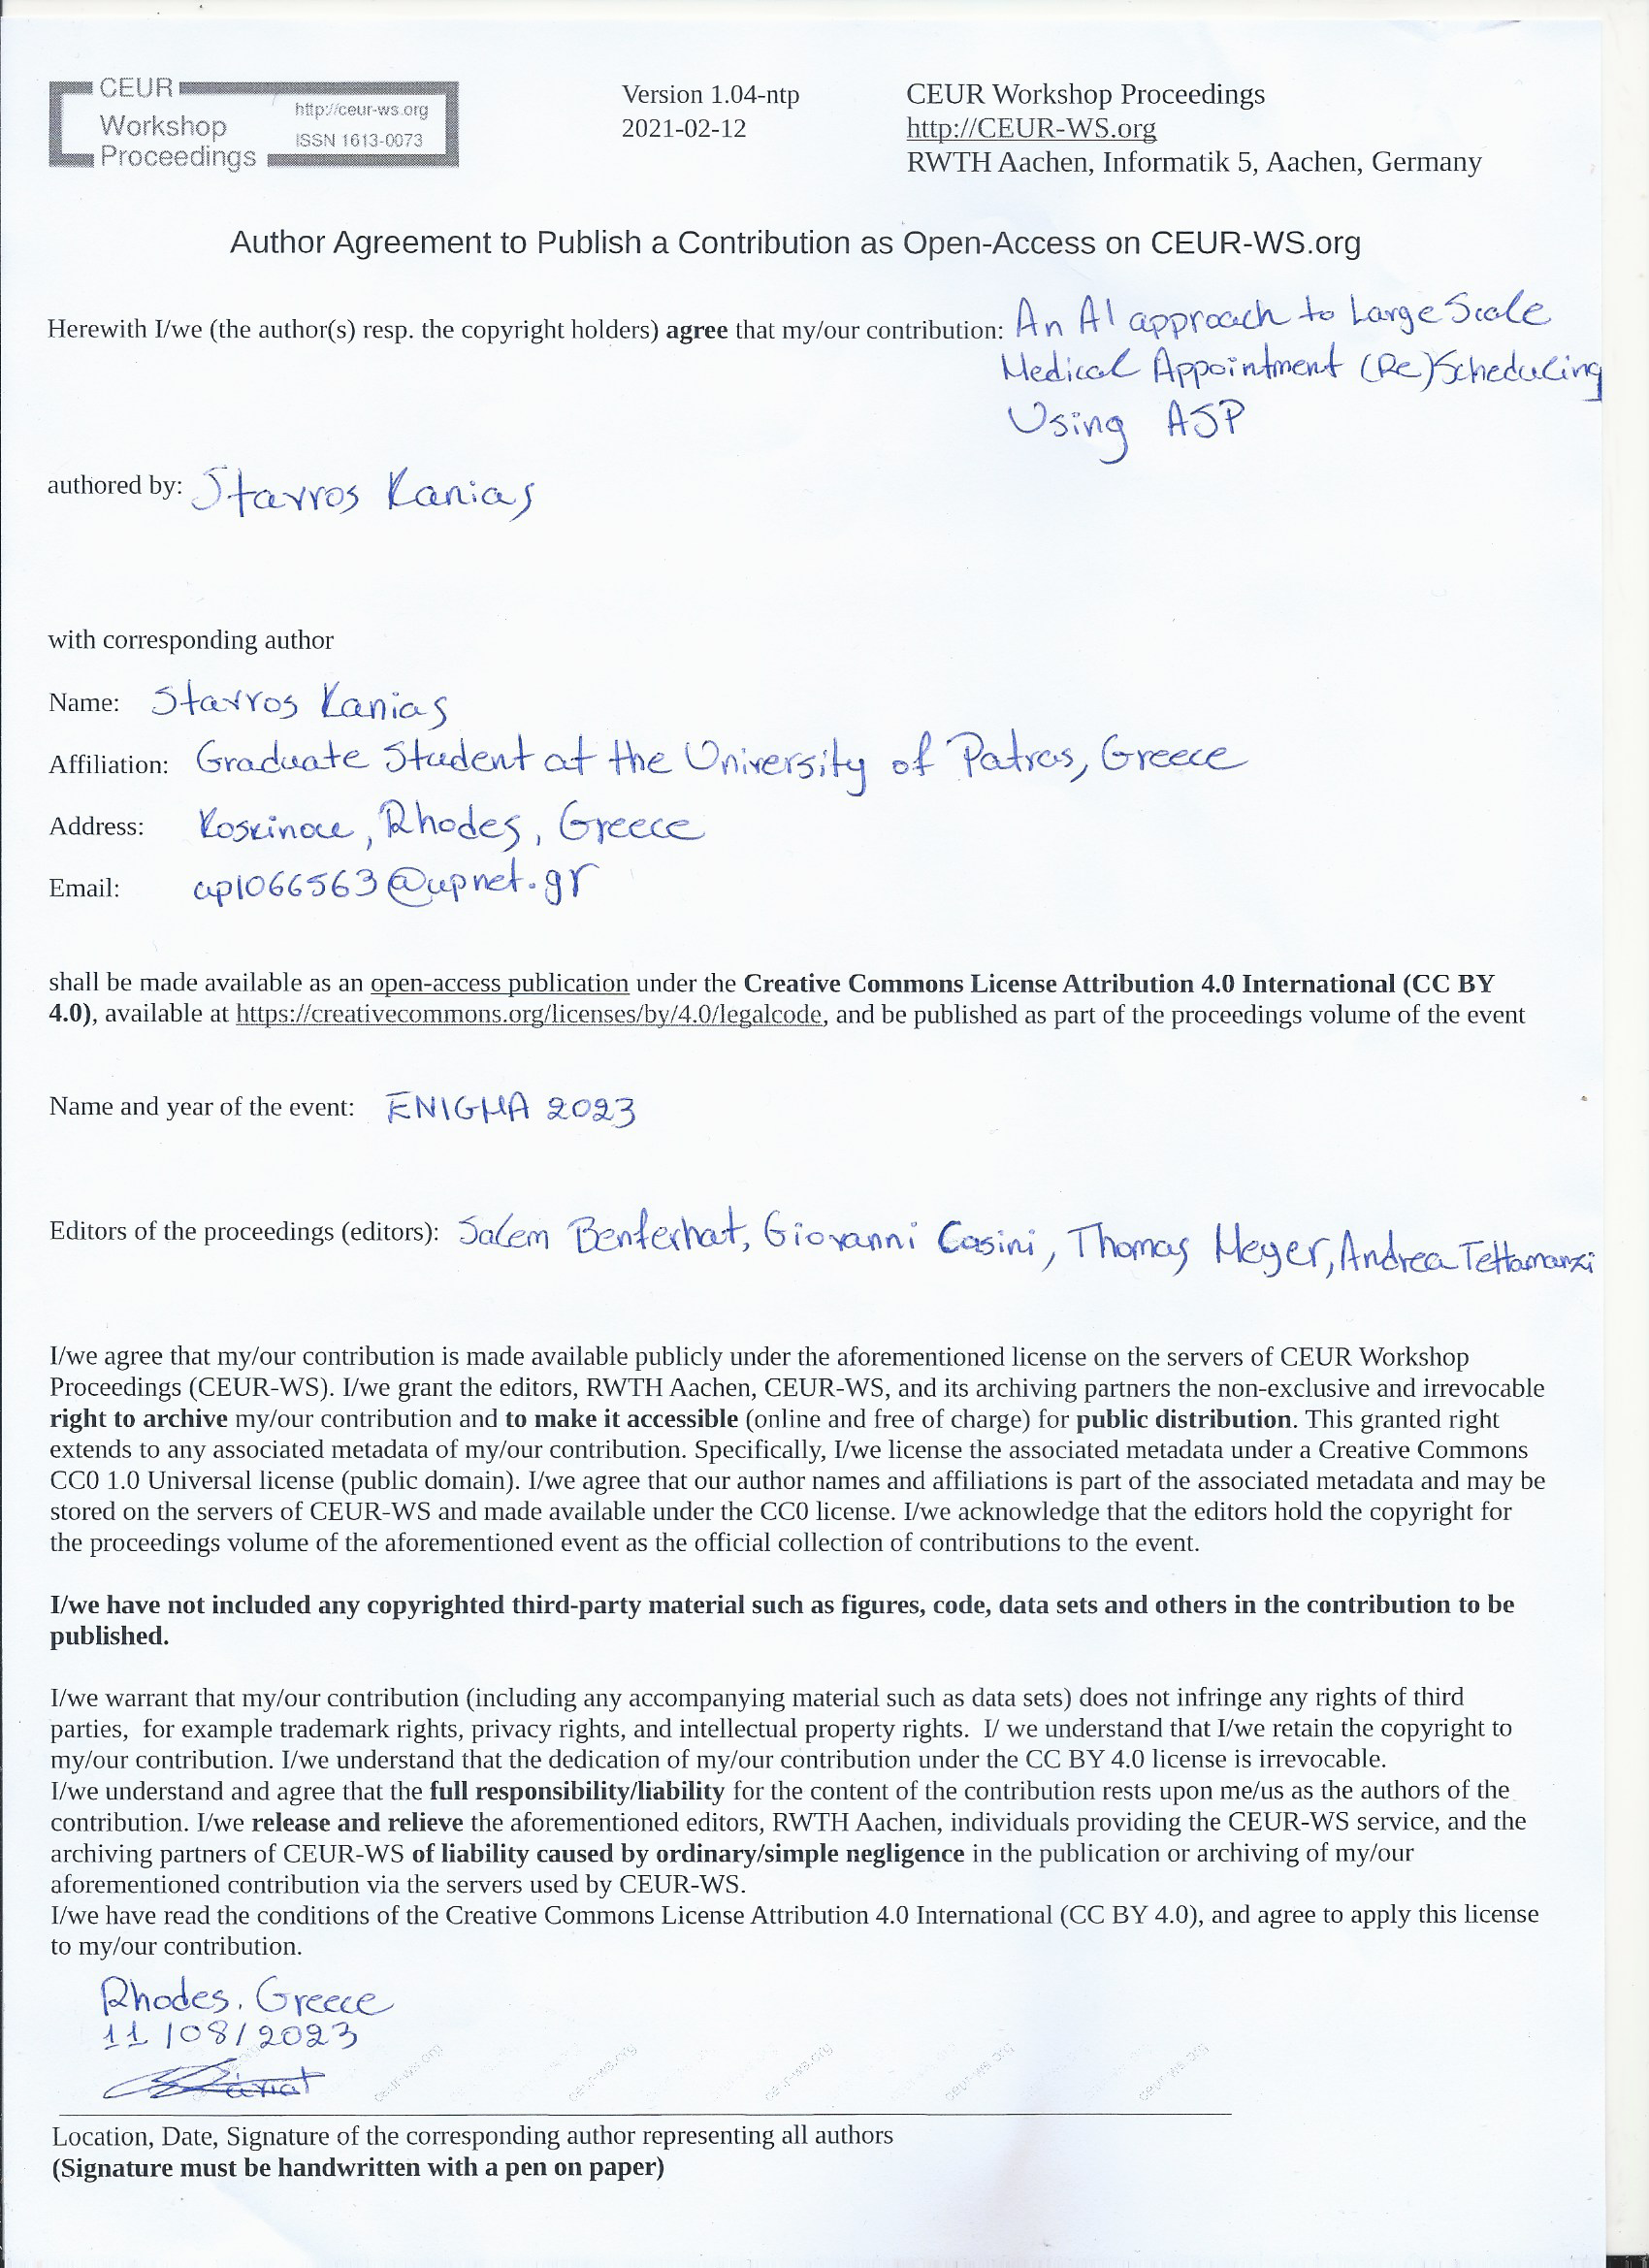 CEUR
Workshop
Proceedings
http://ceur-ws.org
ISSN 1613-0073
Version 1.04-ntp
2021-02-12
CEUR Workshop Proceedings
http://CEUR-WS.org
RWTH Aachen, Informatik 5, Aachen, Germany
Author Agreement to Publish a Contribution as Open-Access on CEUR-WS.org
Herewith I/we (the author(s) resp. the copyright holders) agree that my/our contribution: An AI approach to Large Scale
Medical Appointment (Re)Scheduling
Using ASP
authored by: Stavros Kanias
with corresponding author
Name: Stavros Kanias
Affiliation: Graduate Student at the University of Patras, Greece
Address: Koskinou, Rhodes, Greece
Email: up1066563@upnet.gr
shall be made available as an open-access publication under the Creative Commons License Attribution 4.0 International (CC BY
4.0), available at https://creativecommons.org/licenses/by/4.0/legalcode, and be published as part of the proceedings volume of the event
Name and year of the event: ENIGMA 2023
Editors of the proceedings (editors): Salem Benferhat, Giovanni Casini, Thomas Meyer, Andrea Tettamanzi
I/we agree that my/our contribution is made available publicly under the aforementioned license on the servers of CEUR Workshop
Proceedings (CEUR-WS). I/we grant the editors, RWTH Aachen, CEUR-WS, and its archiving partners the non-exclusive and irrevocable
right to archive my/our contribution and to make it accessible (online and free of charge) for public distribution. This granted right
extends to any associated metadata of my/our contribution. Specifically, I/we license the associated metadata under a Creative Commons
CC0 1.0 Universal license (public domain). I/we agree that our author names and affiliations is part of the associated metadata and may be
stored on the servers of CEUR-WS and made available under the CC0 license. I/we acknowledge that the editors hold the copyright for
the proceedings volume of the aforementioned event as the official collection of contributions to the event.
I/we have not included any copyrighted third-party material such as figures, code, data sets and others in the contribution to be
published.
I/we warrant that my/our contribution (including any accompanying material such as data sets) does not infringe any rights of third
parties, for example trademark rights, privacy rights, and intellectual property rights. I/ we understand that I/we retain the copyright to
my/our contribution. I/we understand that the dedication of my/our contribution under the CC BY 4.0 license is irrevocable.
I/we understand and agree that the full responsibility/liability for the content of the contribution rests upon me/us as the authors of the
contribution. I/we release and relieve the aforementioned editors, RWTH Aachen, individuals providing the CEUR-WS service, and the
archiving partners of CEUR-WS of liability caused by ordinary/simple negligence in the publication or archiving of my/our
aforementioned contribution via the servers used by CEUR-WS.
I/we have read the conditions of the Creative Commons License Attribution 4.0 International (CC BY 4.0), and agree to apply this license
to my/our contribution.
Rhodes, Greece
11/08/2023
ceur-ws.org ceur-ws.org ceur-ws.org ceur-ws.org ceur-ws.org
Location, Date, Signature of the corresponding author representing all authors
(Signature must be handwritten with a pen on paper)